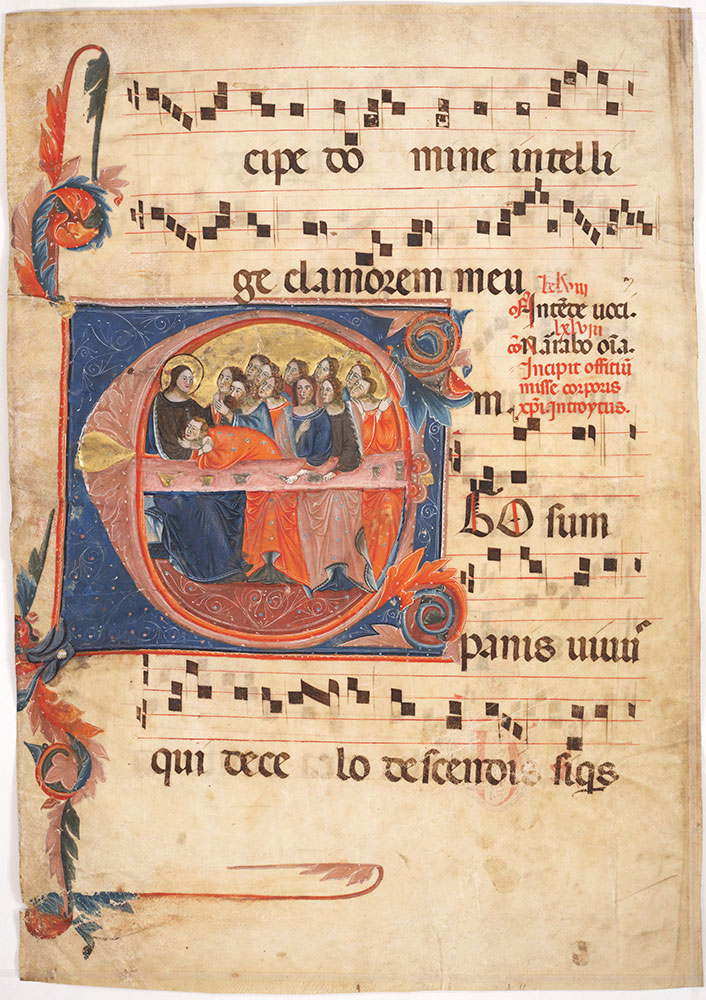 cipe do mine intelli
ge clamorem meu
of Intēde uoci.
lxviii
cō Narrabo oīa.
Incipit offitiū
misse corporis
xp̄i Introytus.
m.
E GO sum
panis uiuu
qui dece lo descendi siqs